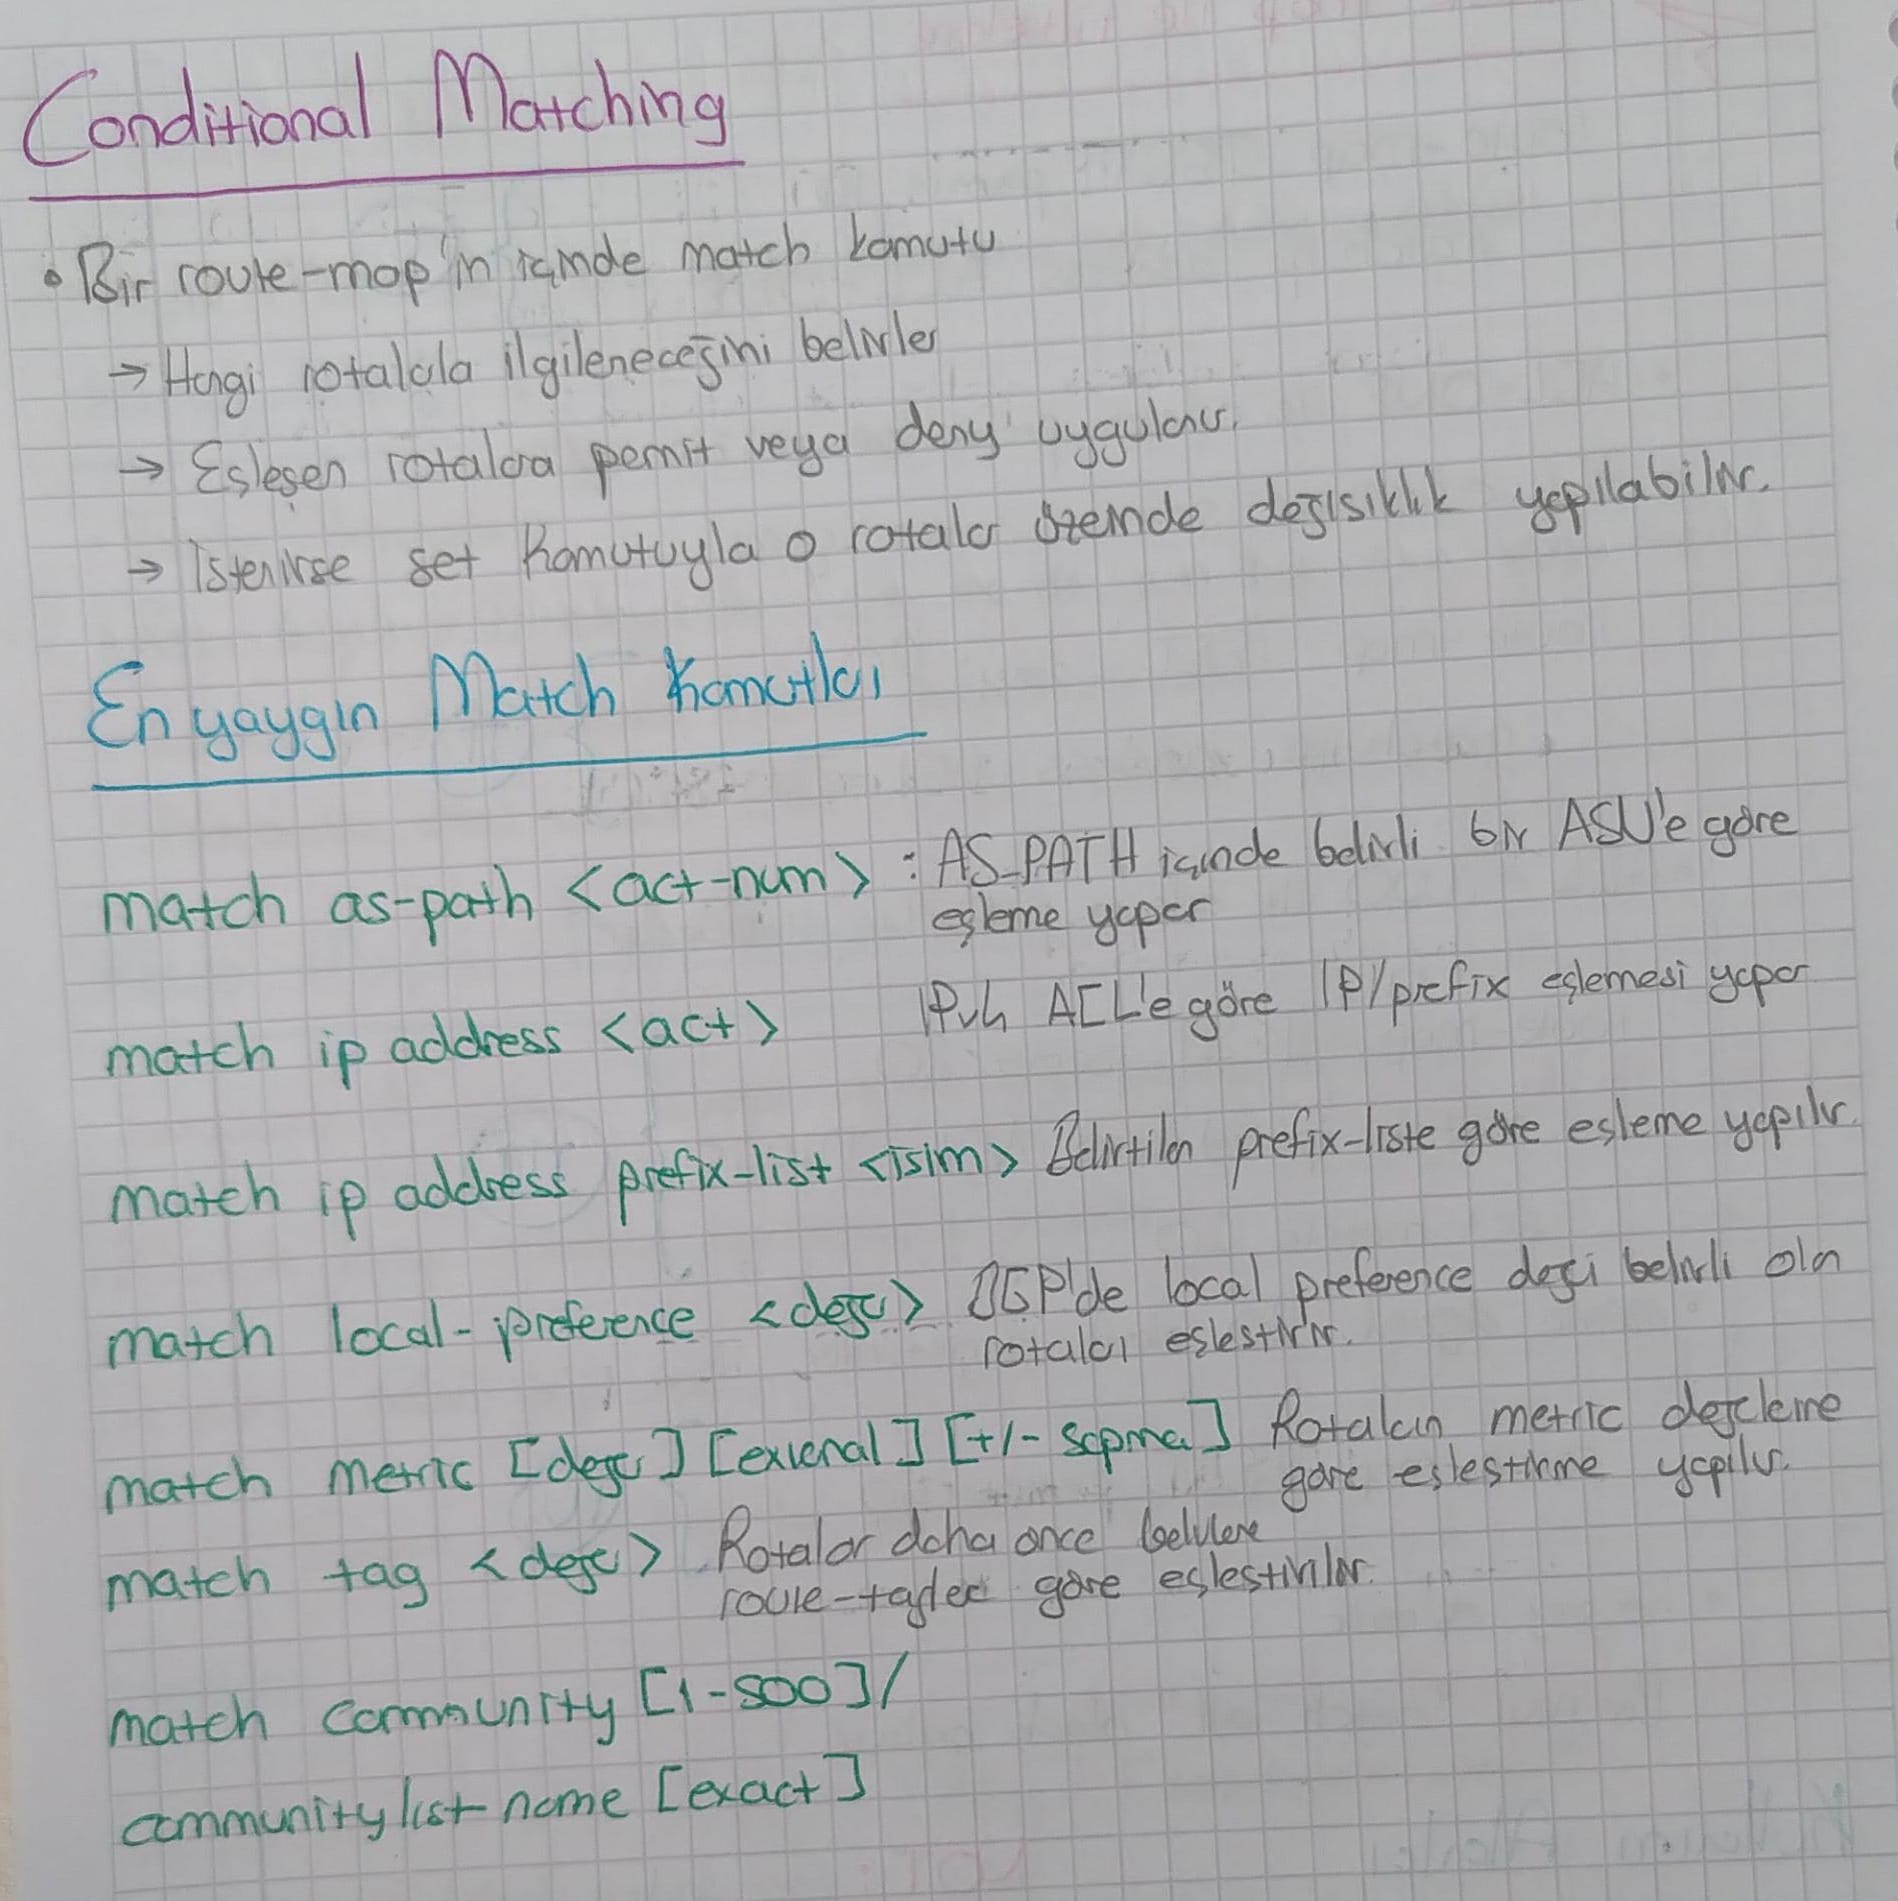 Conditional Matching
• Bir route-map'in içinde match komutu
→ Hangi rotalarla ilgileneceğini belirler
→ Eşleşen rotalara permit veya deny uygulanır.
→ İstenirse set komutuyla o rotalar üzerinde değişiklik yapılabilir.
En yaygın Match Komutları
match as-path <act-num> : AS_PATH içinde belirli bir ASN'e göre
eşleme yapar
match ip address <act> IPv4 ACL'e göre IP/prefix eşlemesi yapar
match ip address prefix-list <isim> Belirtilen prefix-liste göre eşleme yapılır.
match local-preference <değer> BGP'de local preference değeri belirli olan
rotaları eşleştirir.
match metric [değer] [external] [+/- sapma] Rotaların metric değerlerine
göre eşleştirme yapılır.
match tag <değer> Rotalar daha önce belirlenen
route-taglere göre eşleştirilir.
match community [1-500]/
community list name [exact]